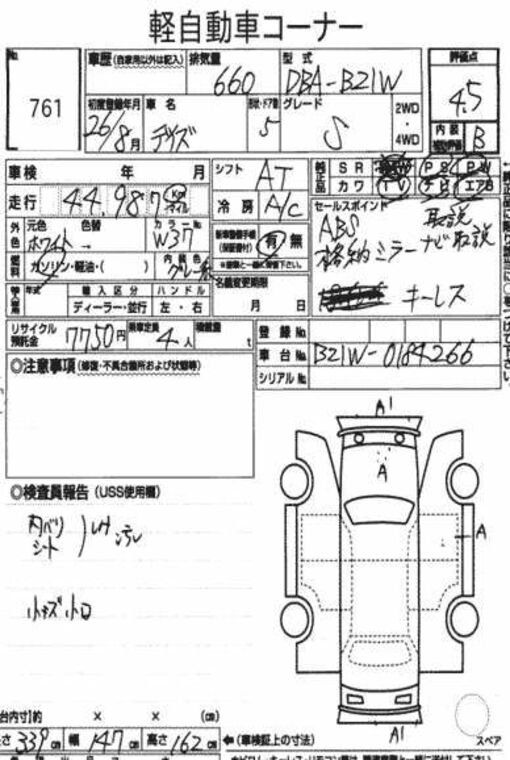 軽自動車コーナー
No. 761
車歴(自家用以外は記入)
排気量 660
型式 DBA-B21W
評価点 4.5
初度登録年月 26/8月
車名 デイズ
形状・ドア数 5
グレード S
2WD・4WD
内装補助評価 B
車検 年 月
シフト AT
純正品 SR PS PW
カワ TV ナビ エアB
走行 44,987 Km マイル
冷房 A/C
セールスポイント
ABS 取説
格納ミラー ナビ取説
キーレス
外色 元色 ホワイト 色替 → カラーNo. W37
新車整備手帳(保証書付) 有 無
燃料 ガソリン・軽油・( ) 内装色 グレー
名義変更期限 月 日
輸入車 年式 輸入区分 ハンドル
ディーラー・並行 左・右
リサイクル預託金 7750円 乗車定員 4人 積載量 t
登録No.
車台No. B21W-0184266
シリアルNo.
◎注意事項(修復・不具合箇所および状態等)
◎検査員報告(USS使用欄)
内バリ
シート
汚レ
小キズ小凹
A1
A
A
A1
スペア
台内寸]約 × × (cm)
さ339cm 幅147cm 高さ162cm ←(車検証上の寸法)